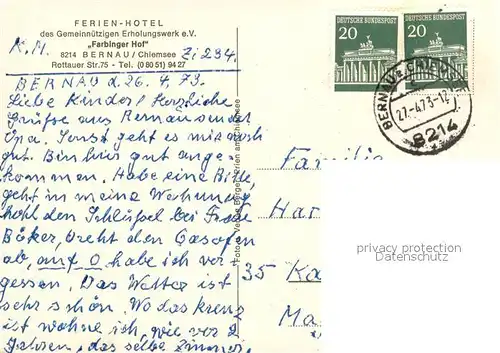 FERIEN-HOTEL
des Gemeinnützigen Erholungswerk e.V.
„Farbinger Hof"
8214 BERNAU/Chiemsee
Rottauer Str.75 - Tel. (08051) 9427
K.H.
Zi 234.
BERNAU d. 26. 4. 73.
Liebe Kinder! Herzliche
Grüße aus Bernau sendet
Opa. Sonst geht es mir noch
gut. Bin hir gut ange-
kommen. Habe eine Bitte
geht in meine Wohnung
hohl den Schlüßel bei Frau
Böker, dreht den Gasofen
ab, auf O habe ich ver-
gessen. Das Wetter ist
sehr schön. Wo das kreuz
ist wohne ich, wie vor 2
Jahren, das selbe Zimmer
DEUTSCHE BUNDESPOST
20
DEUTSCHE BUNDESPOST
20
BERNAU a. CHIEMSEE
27.-4.73-12
8214
Familie
Har
35 Ka
Ma
privacy protection
Datenschutz